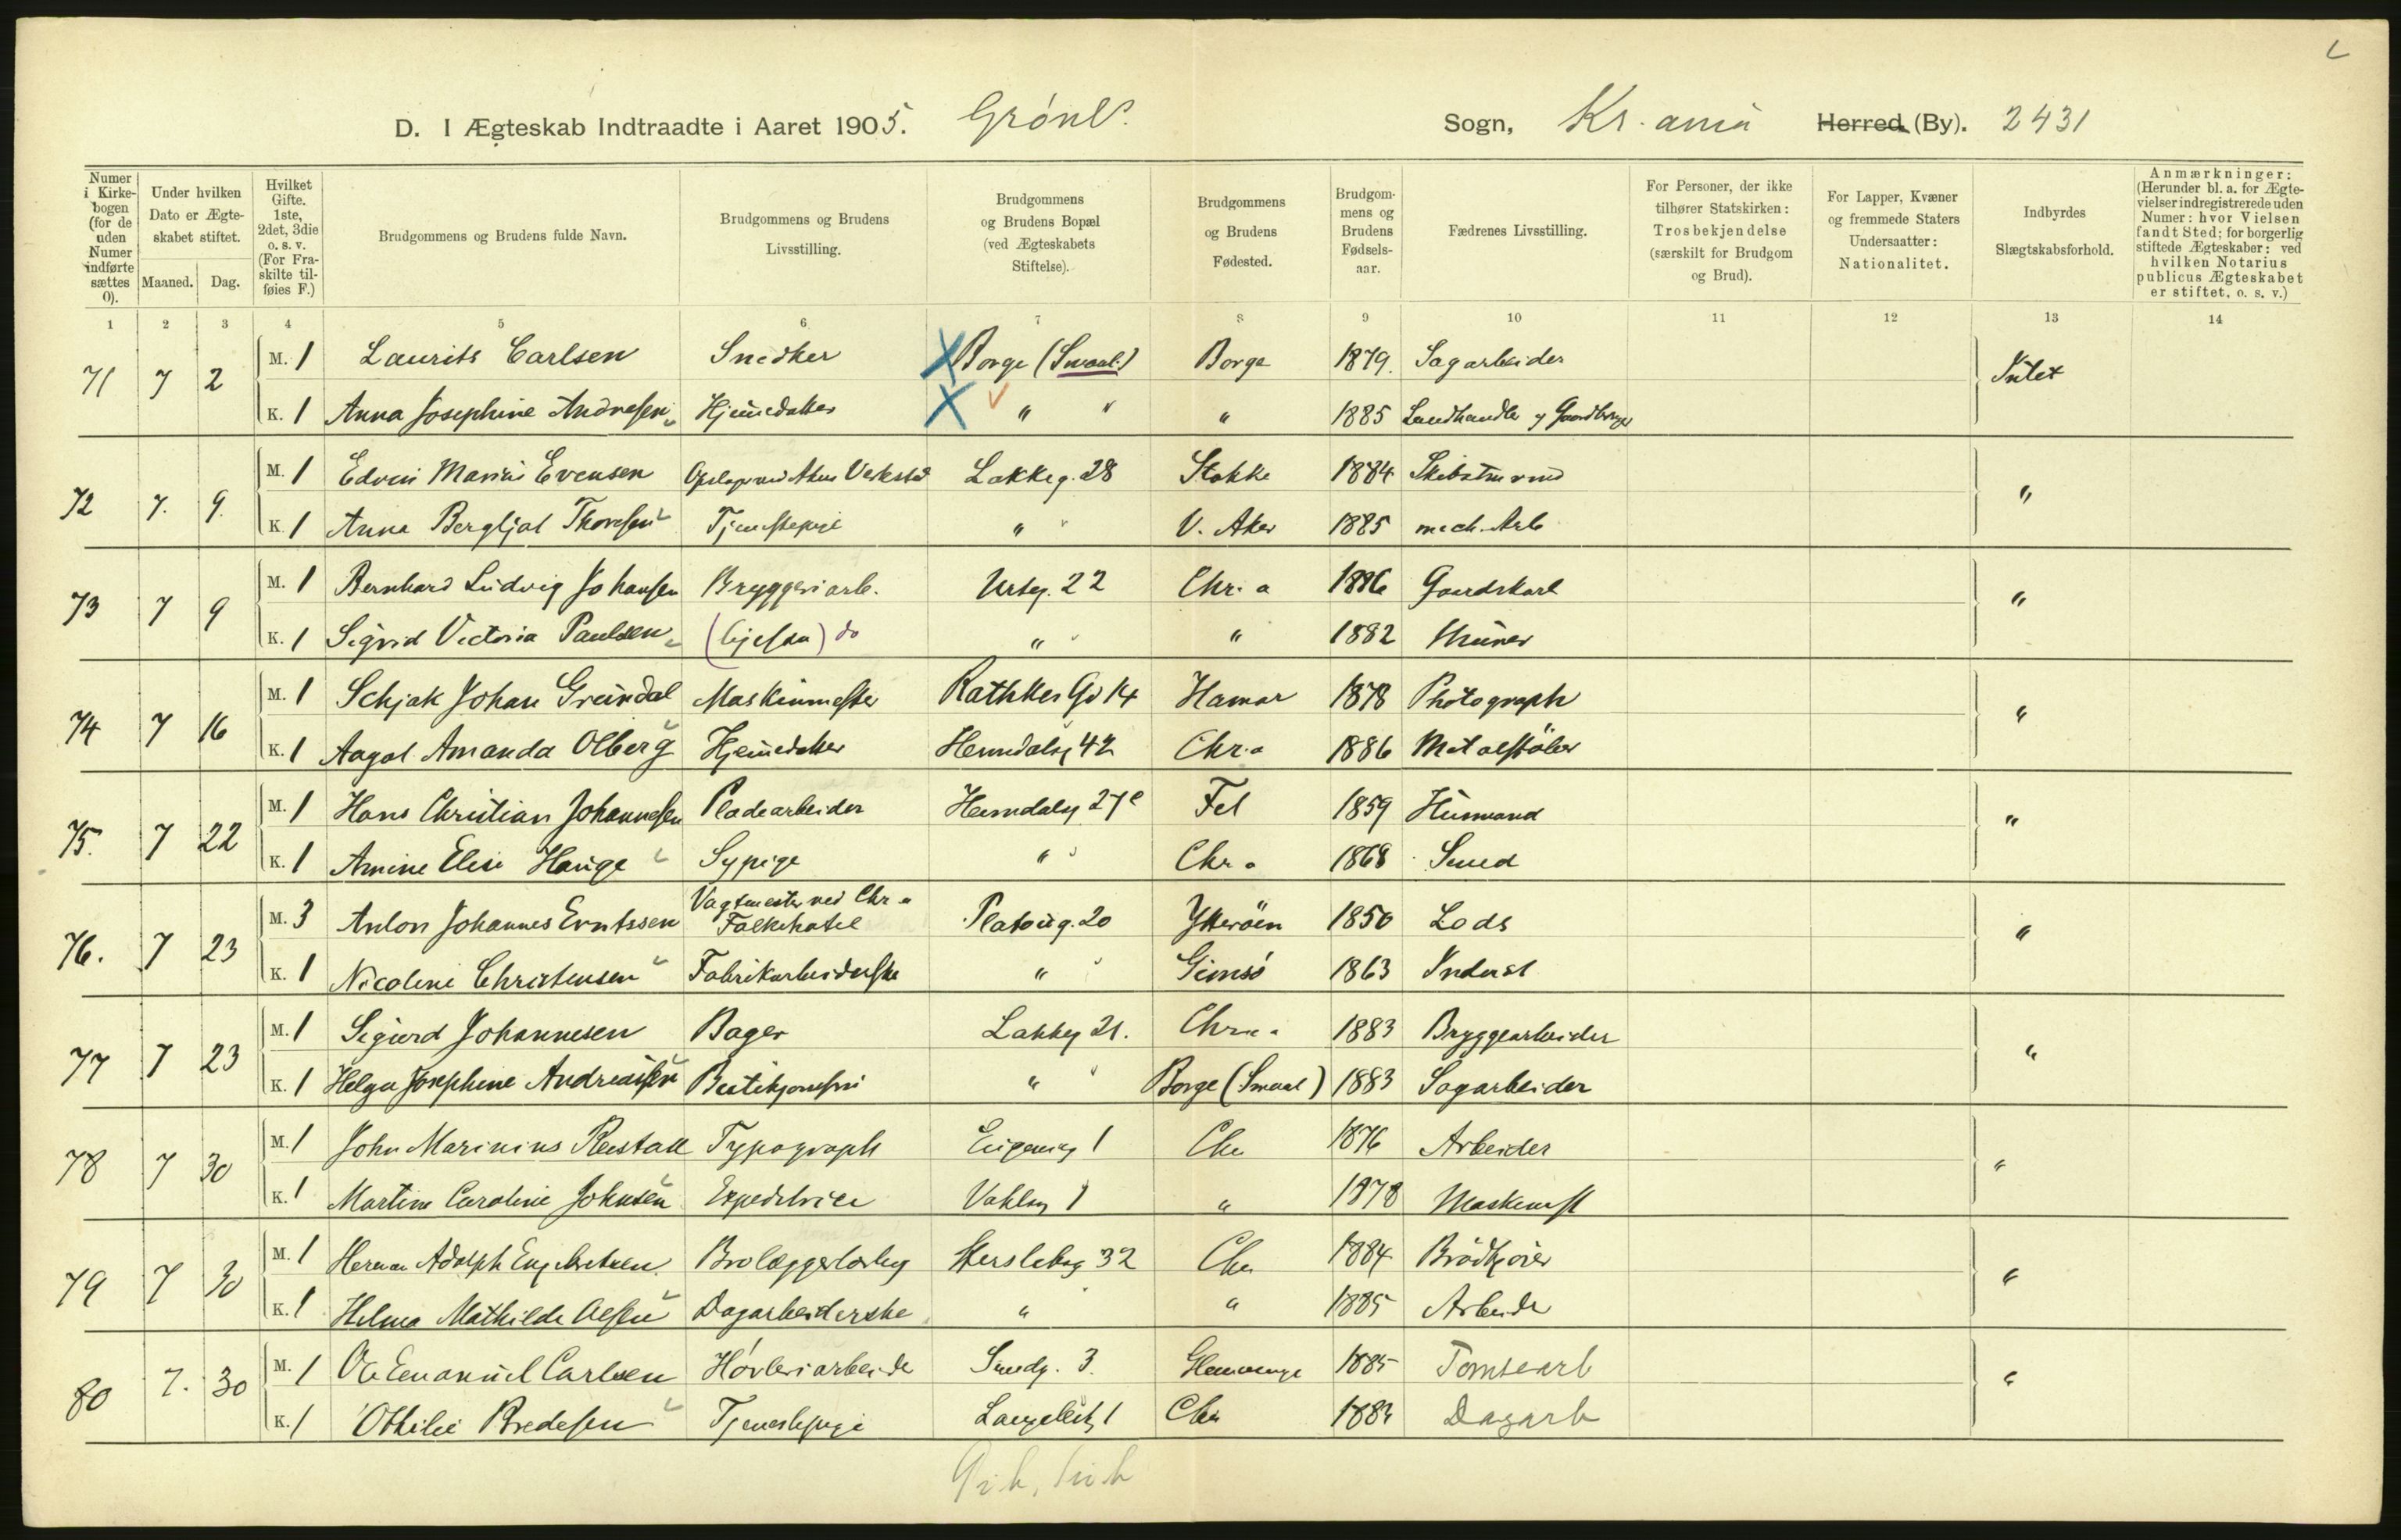 D. I Ægteskab Indtraadte i Aaret 1905. Grönl. Sogn, Kr.ania Herred (By). 2431
Numer i Kirkebogen (for de uden Numer indførte sættes 0).
Under hvilken Dato er Ægteskabet stiftet.
Maaned. Dag.
Hvilket Gifte. 1ste, 2det, 3die o. s. v. (For Fraskilte tilføies F.)
Brudgommens og Brudens fulde Navn.
Brudgommens og Brudens Livsstilling.
Brudgommens og Brudens Bopæl (ved Ægteskabets Stiftelse).
Brudgommens og Brudens Fødested.
Brudgommens og Brudens Fødselsaar.
Fædrenes Livsstilling.
For Personer, der ikke tilhører Statskirken: Trosbekjendelse (særskilt for Brudgom og Brud).
For Lapper, Kvæner og fremmede Staters Undersaatter: Nationalitet.
Indbyrdes Slægtskabsforhold.
Anmærkninger: (Herunder bl. a. for Ægtevielser indregistrerede uden Numer: hvor Vielsen fandt Sted; for borgerlig stiftede Ægteskaber: ved hvilken Notarius publicus Ægteskabet er stiftet, o. s. v.)
1 2 3 4 5 6 7 8 9 10 11 12 13 14
71 7 2 M. 1 Laurits Carlsen Snedker Borge (Smaal.) Borge 1879. Sagarbeider Intet
K. 1 Anna Josephine Andresen Hjemmedatter " " " 1885 Landhandler og Gaardbruger
72 7. 9. M. 1 Edvin Marius Evensen Akers Verksted Lakkeg. 28 Stokke 1884 "
K. 1 Anna Bergljot Thoresen Tjenestepige " " V. Aker 1885 mech. Arb
73 7 9 M. 1 Bernhard Ludvig Johansen Bryggeriarb. Urteg. 22 Chr.a 1886 Gaardskarl "
K. 1 Sigrid Victoria Paulsen do " " " 1882 Murer
74 7 16 M. 1 Schjak Johan Grindal Maskinmester Rathkes Gd 14 Hamar 1878 Photograph "
K. 1 Aagot Amanda Olberg Hjemmedatter Heimdalsg 42 Chr.a 1886 Metalstöber
75. 7 22 M. 1 Hans Christian Johannesen Pladearbeider Heimdalsg 27 Fet 1859 Husmand "
K. 1 Amine Elise Hauge Sypige " " Chr.a 1868 Smed
76. 7 23 M. 3 Anton Johannes Erntssen Vagtmester ved Chr.a Folkehotel Platoug. 20 Ytteröen 1850 Lods "
K. 1 Nicoline Christensen Fabrikarbeiderske " " Gimsö 1863 Inderst
77 7 23 M. 1 Sigurd Johannesen Bager Lakkeg 21. Chr.a 1883 Bryggearbeider "
K. 1 Helga Josephine Andreassen Butikjomfru " " Borge (Smaal) 1883 Sagarbeider
78 7 30 M. 1 John Marinius Restall Typograph Eugeniag 1 Chr 1876 Arbeider "
K. 1 Martine Caroline Johnsen Expeditrice Vahlsg 1 " 1878 Maskinist
79 7 30 M. 1 Herman Adolph Engebretsen Brolæggerlærling Herslebsg 32 Chr 1884 Brödkjörer "
K. 1 Helma Mathilde Olsen Dagarbeiderske " " " 1885 Arbeider
80 7. 30 M. 1 Ole Emanuel Carlsen Hövleriarbeider Smedg. 3. Glemminge 1885 Tomtearb "
K. 1 Othilie Bredesen Tjenestepige 1 Chr 1883 Dagarb